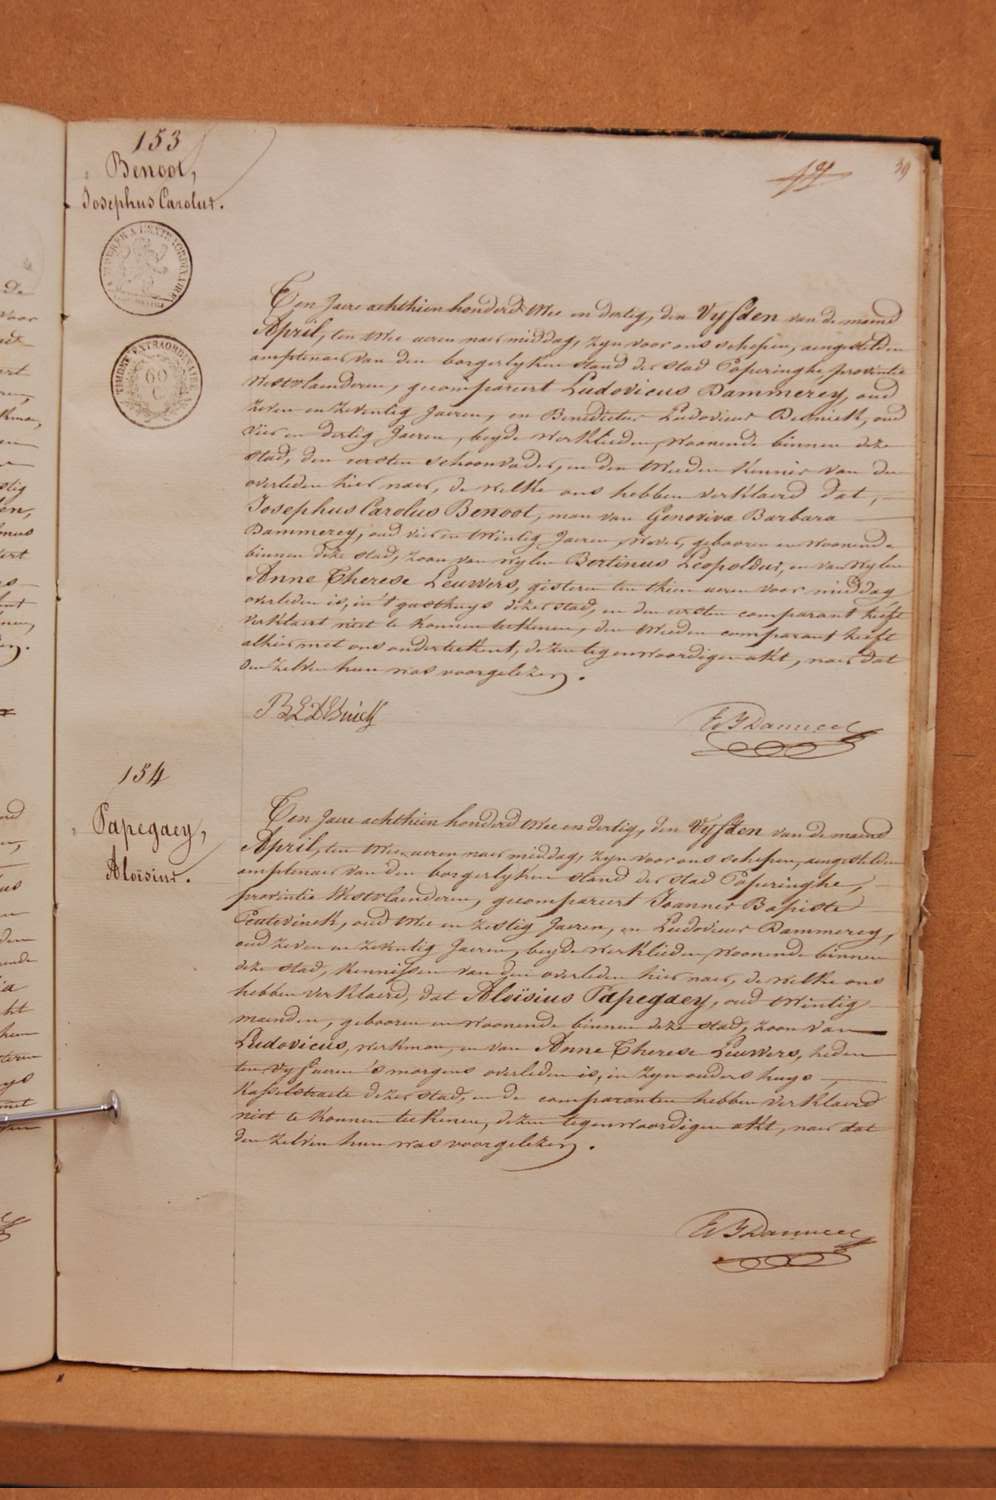 153
Benoot,
Josephus Carolus.
39
TIMBRE EXTRAORDINAIRE
60
C
Ten Jaere achthien honderd twee en dertig, den Vyfden van de maend
April, ten twee ueren naer middag, zyn voor ons schepen, aengestelden
amptenaer van den borgerlyken stand der stad Poperinghe, provintie
Westvlaenderen, gecompareert Ludovicus Dammerey, oud
zeven en zeventig Jaeren, en Benedictus Ludovicus Desnick, oud
vier en dertig Jaeren, beyde werklieden, woonende binnen deze
stad, den eersten schoonvader, en den tweeden kennis van den
overleden hier naer, de welke ons hebben verklaerd dat,
Josephus Carolus Benoot, man van Genoviva Barbara
Dammerey, oud vier en twintig Jaeren, wever, gebooren en woonende
binnen deze stad, zoon van wylen Bertinus Leopoldus, en van wylen
Anne Therese Leuwers, gisteren ten thien ueren voor middag
overleden is, in 't gasthuys dezer stad, en den eersten comparant heeft
verklaert niet te konnen teekenen, den tweeden comparant heeft
alhier met ons onderteekent, dezen tegenwoordigen akt, naer dat
den zelven hun was voorgelezen.
154
Papegaey,
Aloïsius.
Ten Jaere achthien honderd twee en dertig, den Vyfden van de maend
April, ten twee ueren naer middag, zyn voor ons schepen, aengestelden
amptenaer van den borgerlyken stand der stad Poperinghe,
provintie Westvlaenderen, gecompareert Joannes Baptiste
Peutevinck, oud twee en zestig Jaeren, en Ludovicus Dammerey,
oud zeven en zeventig Jaeren, beyde werklieden, woonende binnen
deze stad, kennissen van den overleden hier naer, de welke ons
hebben verklaerd, dat Aloïsius Papegaey, oud twintig
maenden, gebooren en woonende binnen deze stad, zoon van
Ludovicus, werkman, en van Anne Therese Leuwers, heden
ten vyf ueren 's morgens overleden is, in zyn ouders huys,
Kasselstraete dezer stad, en de comparanten hebben verklaerd
niet te konnen teekenen, dezen tegenwoordigen akt, naer dat
den zelven hun was voorgelezen.